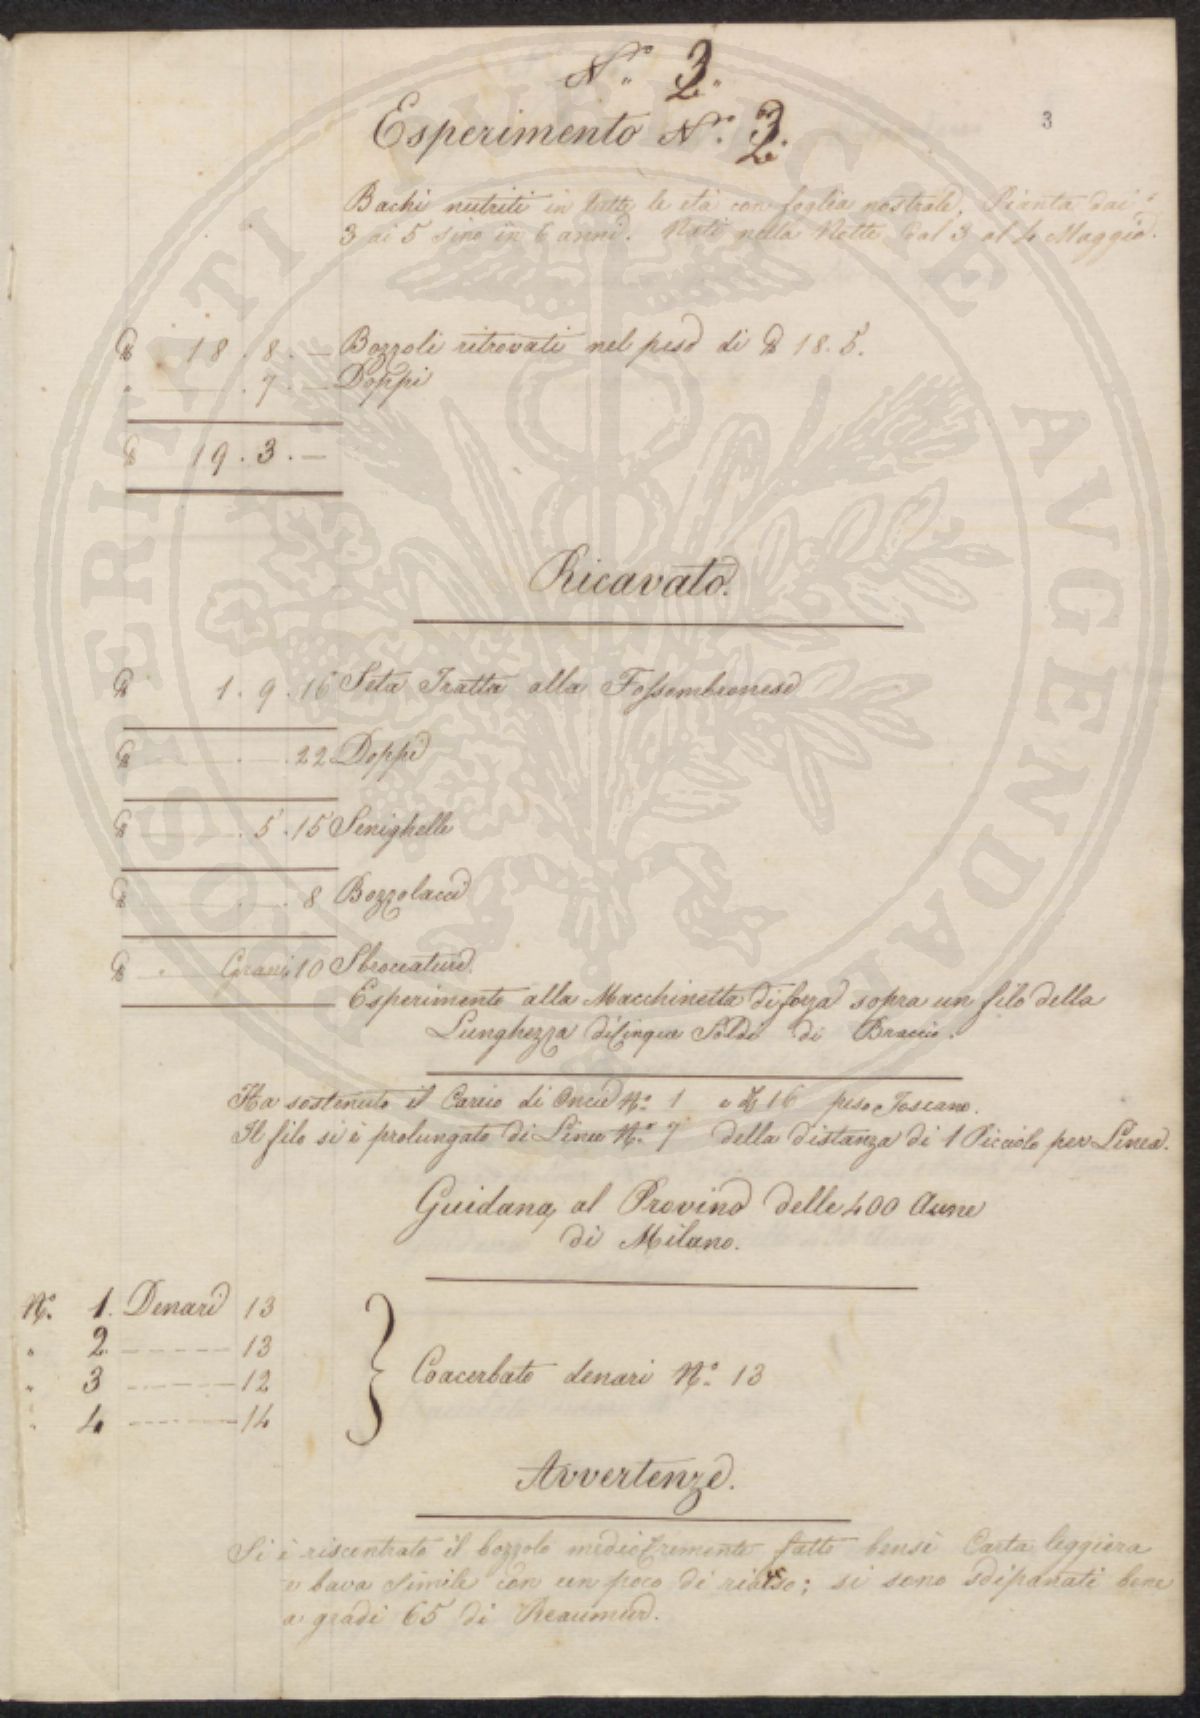 N.° 3.
Esperimento N.° 3.
3
Bachi nutriti in tutte le età con foglia nostrale. Pianta dai
3 ai 5 sino in 6 anni. Nati nella Notte dal 3 al 4 Maggio.
℔ 18. 8. — Bozzoli ritrovati nel peso di ℔ 18. 5.
" — . 7. — Doppi
℔ 19. 3. —
Ricavato.
℔ 1. 9. 16 Seta Tratta alla Fossombronese
℔ — . — . 22 Doppi
℔ — . 5. 15 Senighelle
℔ — . — . 8 Bozzolacci
℔ — " Grani 10 Sbrocature
Esperimento alla Macchinetta di forza sopra un filo della
Lunghezza di Cinque Soldi di Braccio.
Ha sostenuto il Carico di Oncie N.° 1 e 16 peso Toscano.
Il filo si è prolungato di Linee N.° 7 della distanza di 1 Picciolo per Linea.
Guidana al Provino delle 400 Aune
di Milano.
N.° 1. Denari 13
" 2. — 13
" 3 — 12
" 4 — 14
Coacerbato denari N.° 13
Avvertenze.
Si è riscontrato il bozzolo mediocremente fatto bensì Carta leggiera
e bava simile con un poco di rialso; si sono sdipanati bene
a gradi 65 di Reaumur.
POSTERITATI AVGENDAE